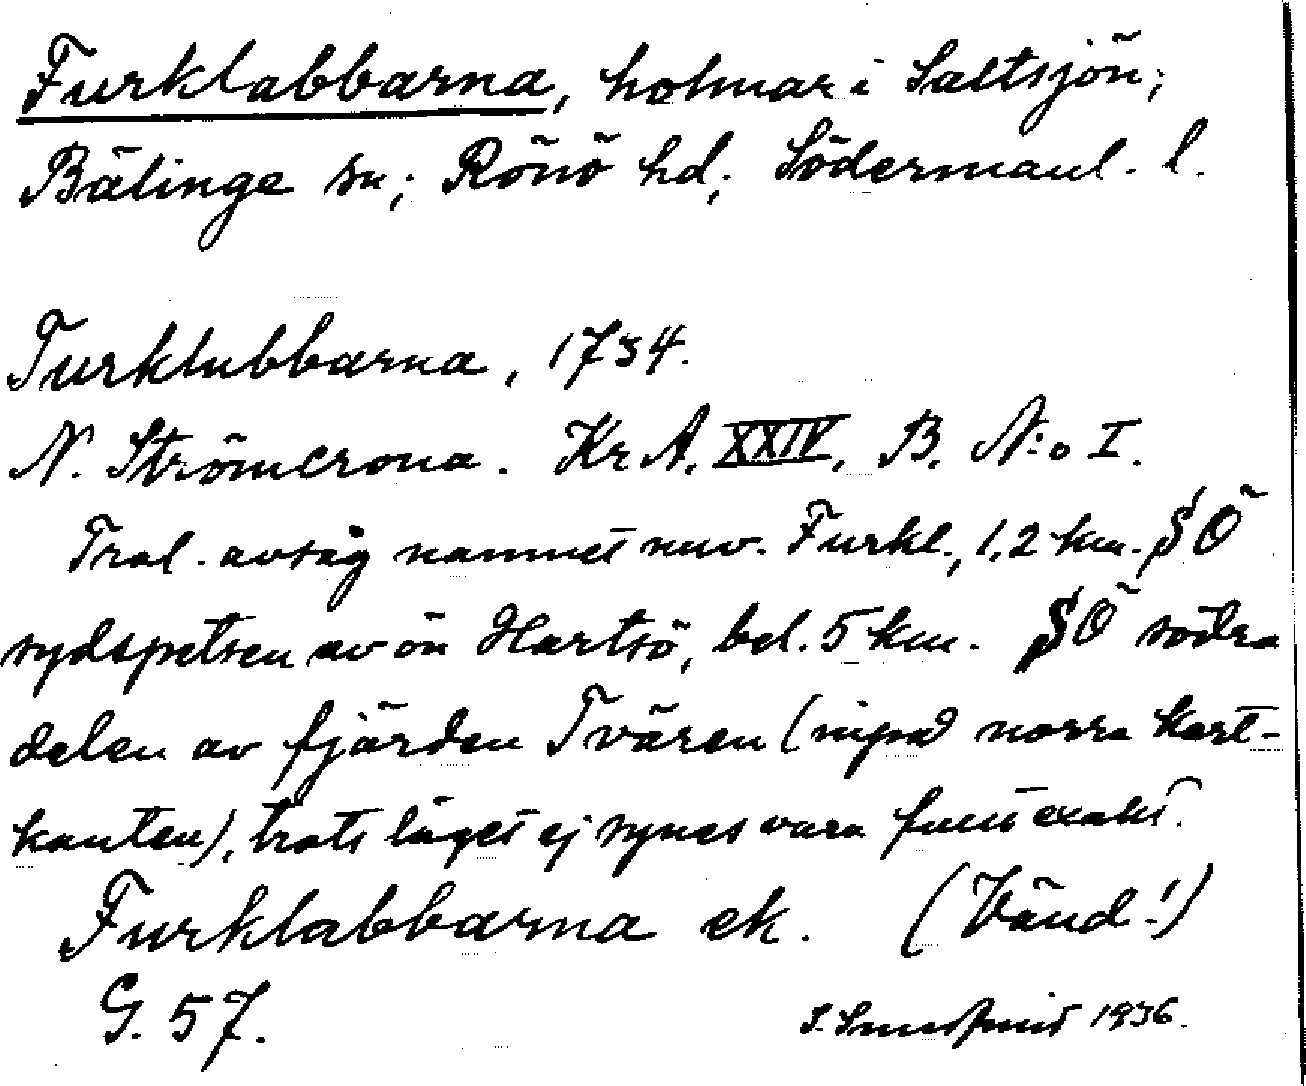 Furklabbarna, holmar i Saltsjön;
Bälinge sn; Rönö hd; Södermanl. l.
Turklubbarna, 1734.
N. Strömcrona. Kr A. XXIV, B. N:o I.
Trol. avsåg namnet nuv. Furkl., 1,2 km. SÖ
sydspetsen av ön Hartsö, bel. 5 km. SÖ södra
delen av fjärden Tvären (inpå norra kart-
kanten), trots läget ej synes vara fullt exakt.
Furklabbarna ek. (Vänd!)
G. 57.
1936.